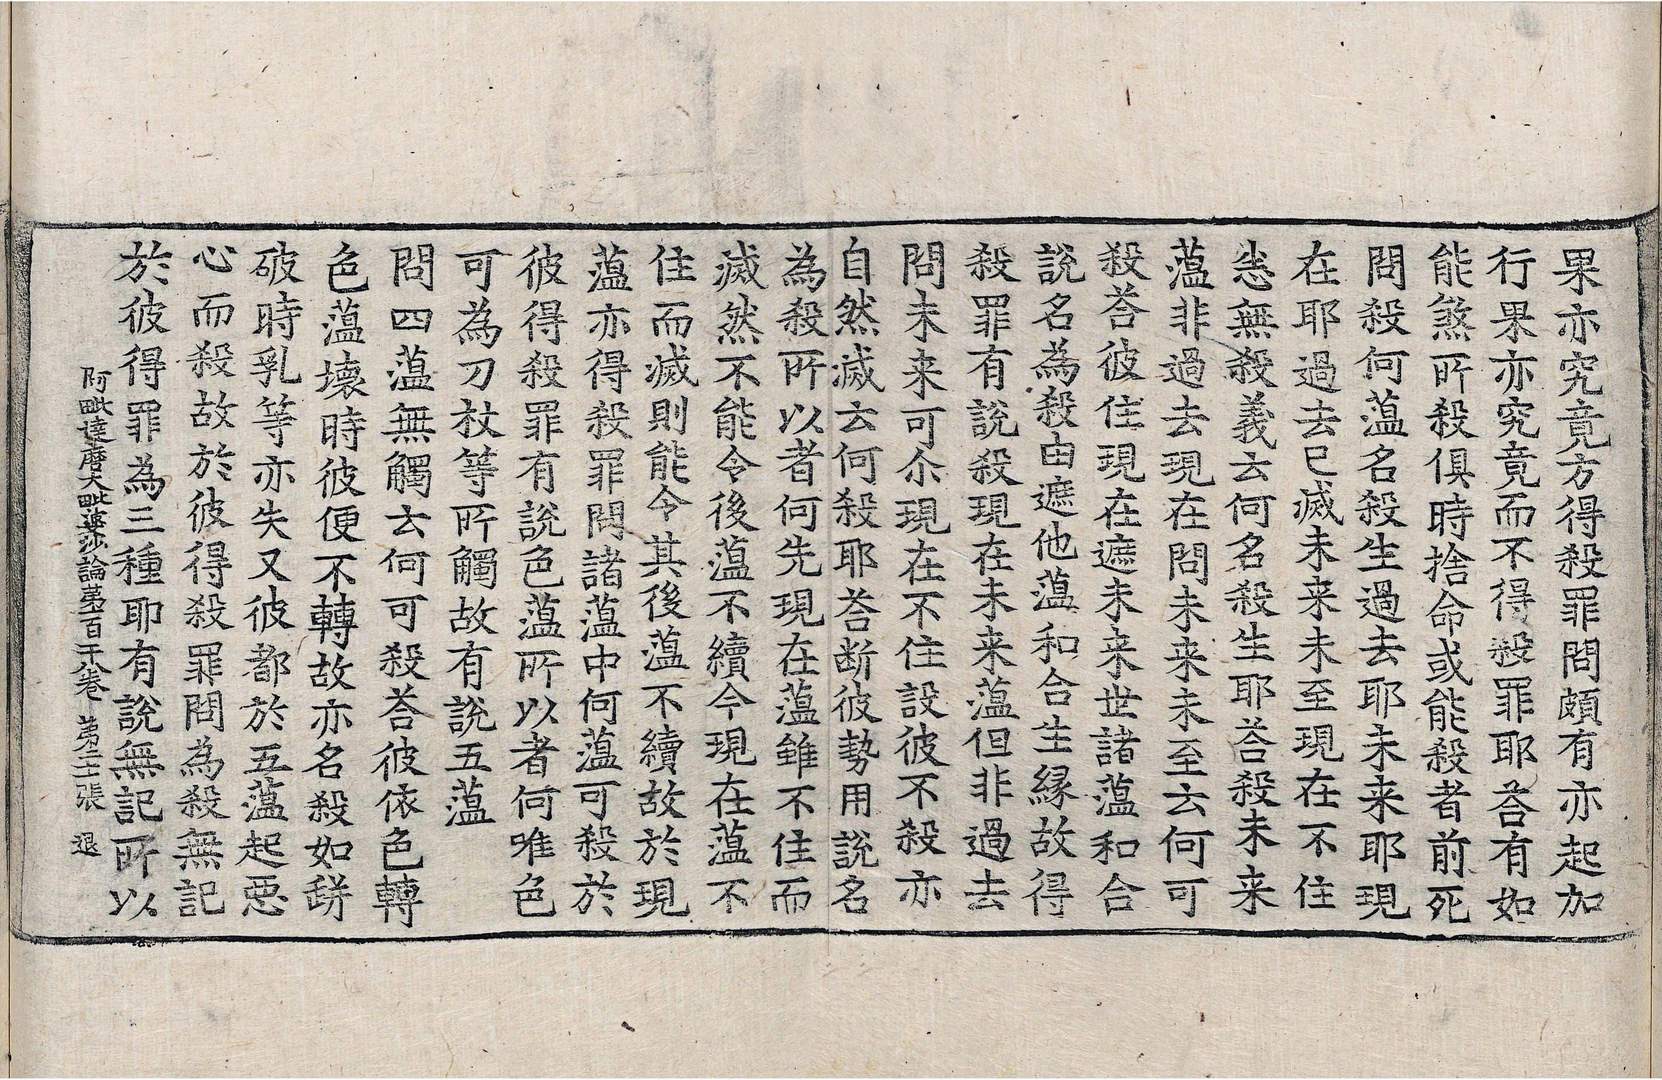 果亦究竟方得殺罪問頗有亦起加
行果亦究竟而不得殺罪耶荅有如
能煞所殺俱時捨命或能殺者前死
問殺何蕰名殺生過去耶未来耶現
在耶過去已滅未来未至現在不住
悉無殺義云何名殺生耶荅殺未来
蕰非過去現在問未来未至云何可
殺荅彼住現在遮未来世諸蕰和合
說名為殺由遮他蕰和合生緣故得
殺罪有說殺現在未来蕰但非過去
問未来可尒現在不住設彼不殺亦
自然滅云何殺耶荅断彼勢用說名
為殺所以者何先現在蕰雖不住而
滅然不能令後蕰不續今現在蕰不
住而滅則能令其後蕰不續故於現
蕰亦得殺罪問諸蕰中何蕰可殺於
彼得殺罪有說色蕰所以者何唯色
可為刀杖等所觸故有說五蕰
問四蕰無觸云何可殺荅彼依色轉
色蕰壞時彼便不轉故亦名殺如缾
破時乳等亦失又彼都於五蕰起惡
心而殺故於彼得殺罪問為殺無記
於彼得罪為三種耶有說無記所以
阿毗達磨大毗婆沙論第一百十八卷 第二十張 退